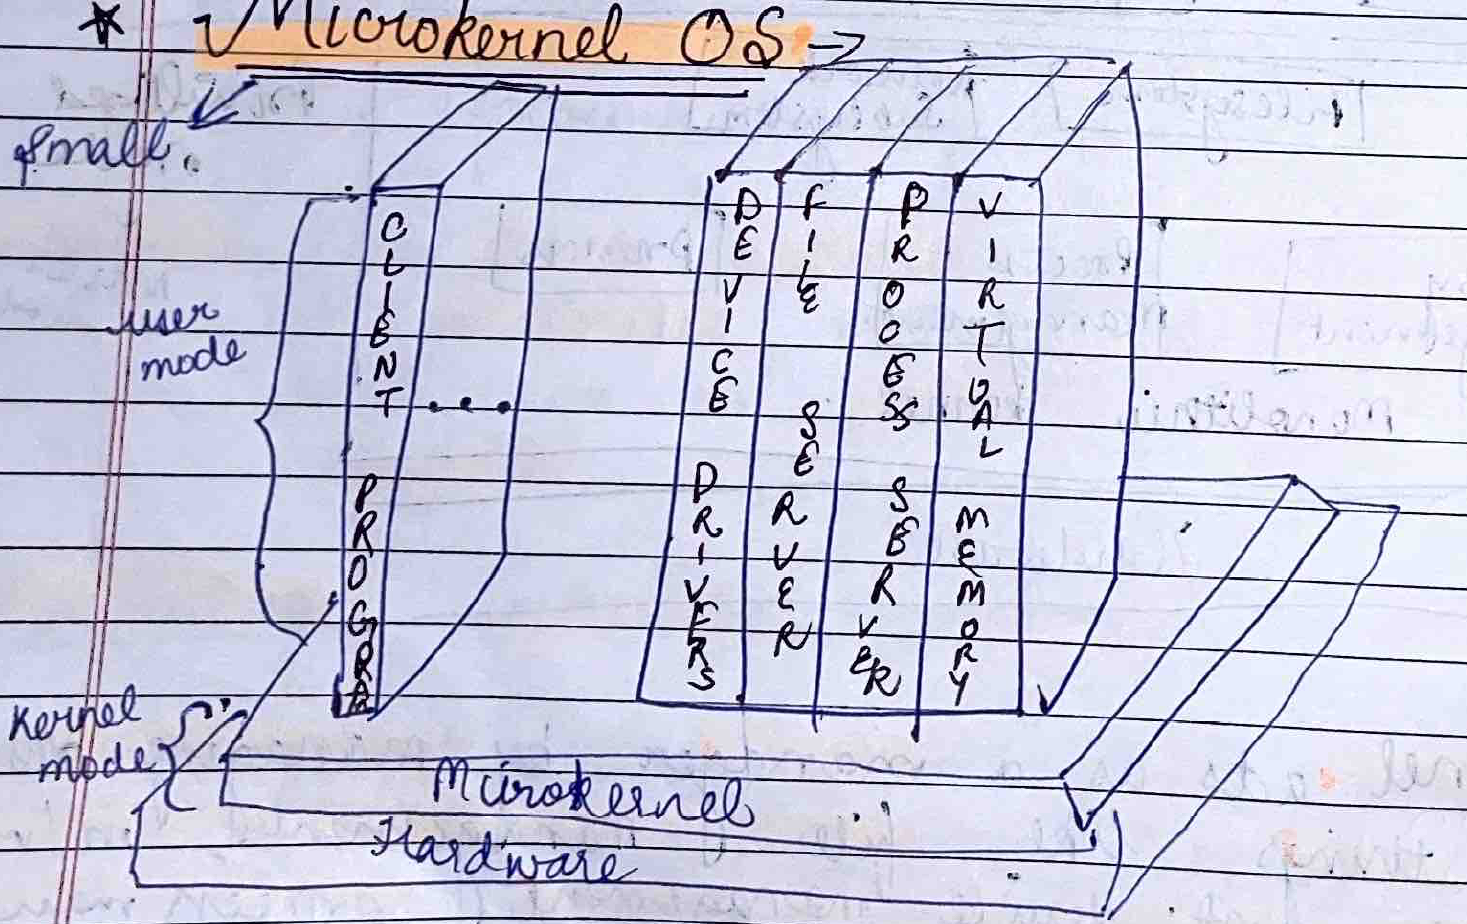 * Microkernel OS →
Small
user
mode
CLIENT PROGRA
DEVICE DRIVERS
FILE SERVER
PROOESS SERVER
VIRTUAL MEMORY
Kernel
mode
Microkernel
Hardware